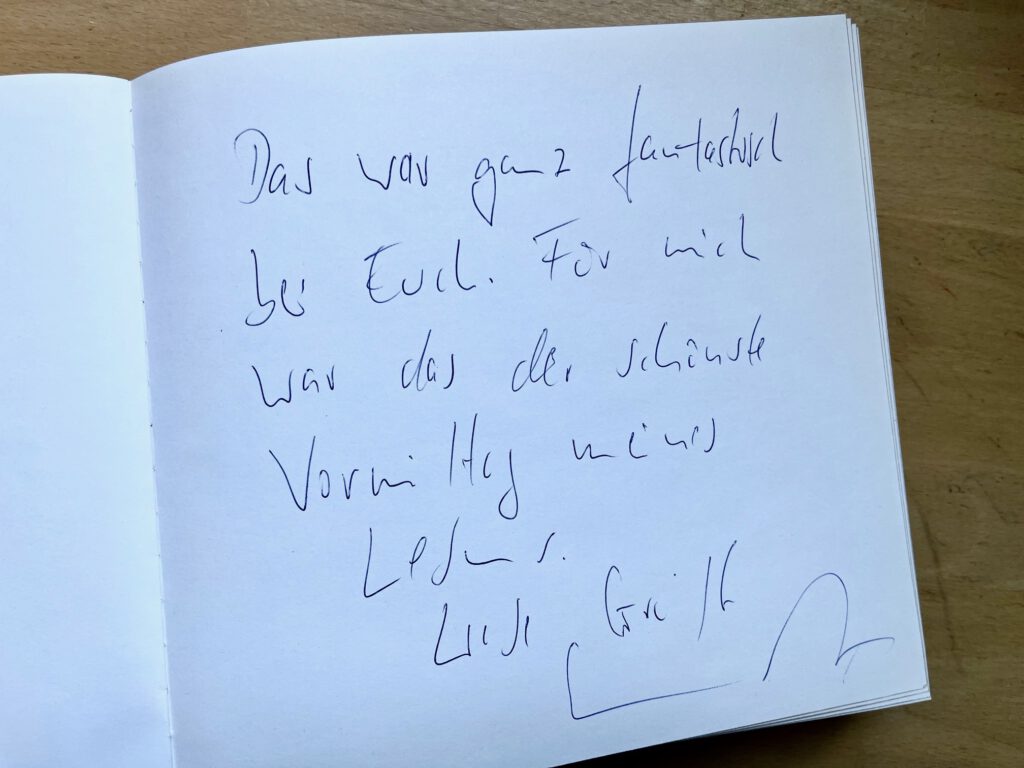 Das war ganz fantastisch
bei Euch. Für mich
war das der schönste
Vormittag meines
Lebens.
Liebe Grüße